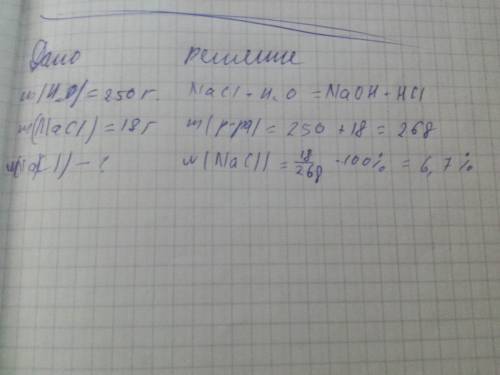 Дано Решение
m(H₂O) = 250 г. NaCl + H₂O = NaOH + HCl
m(NaCl) = 18 г m(р-ра) = 250 + 18 = 268
w(NaCl) - ? w(NaCl) = 18/268 · 100% = 6,7%